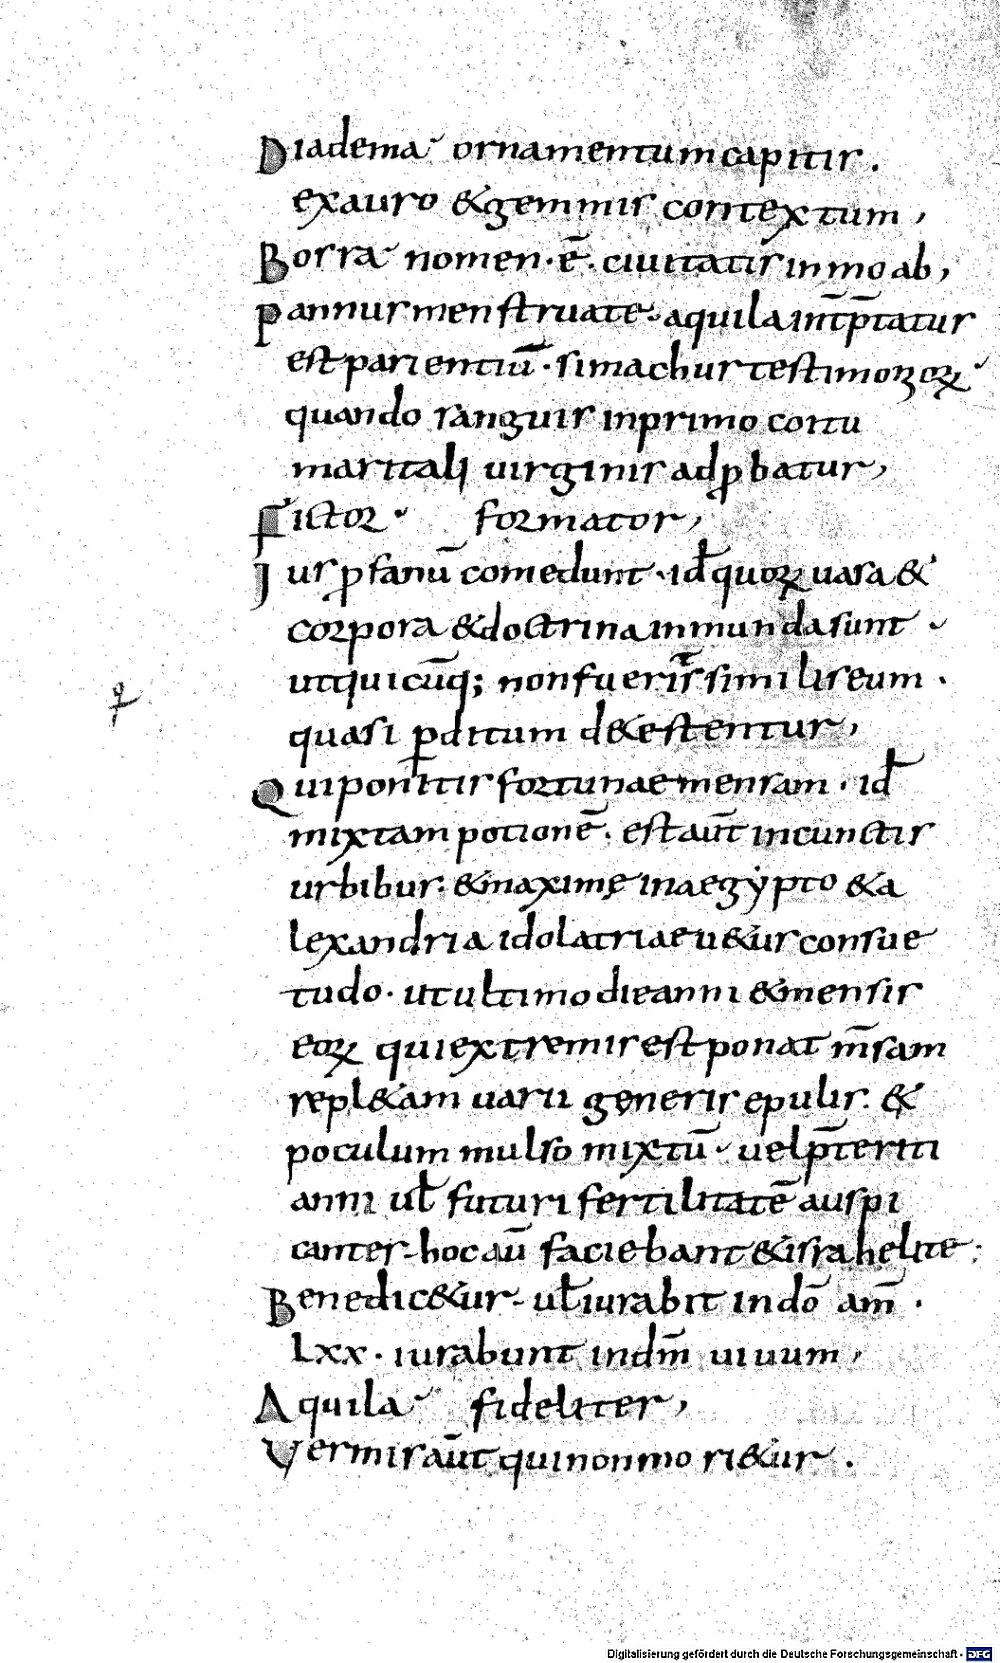 Diadema ornamentum capitis.
ex auro & gemmis contextum,
Bosra nomen·ē·ciuitatis in moab,
pannus menstruate· aquila int̄p̄tatur
est parientiū· simachus testimoniorꝝ
quando sanguis in primo coitu
maritali uirginis adꝓbatur,
Fictor· formator,
Ius ꝓfanū comedunt· id̄ quorꝝ uasa &
corpora & doctrina inmunda sunt
ut quicūq; non fuerit similis eum.
quasi ꝑditum detestentur,
Qui ponitis fortunae mensam· id̄
mixtam potionē· est aūt in cunctis
urbibus· & maximę in aegẏpto & a
lexandria idolatriae u&us consue
tudo· ut ultimo die anni & mensis
eorꝝ qui extremis est ponat m̄sam
repl&am uarii generis epulis· &
poculum mulso mixtū· uel p̄teriti
anni ul̄ futuri fertilitatē auspi
cantes· hoc aū faciebant & israhelite·
Benedic&ur· ul̄ iurabit in dō am̄·
Lxx· iurabunt in dm̄ uiuum,
Aquila fideliter,
Vermis aūt qui non mori&ur.
Digitalisierung gefördert durch die Deutsche Forschungsgemeinschaft - DFG